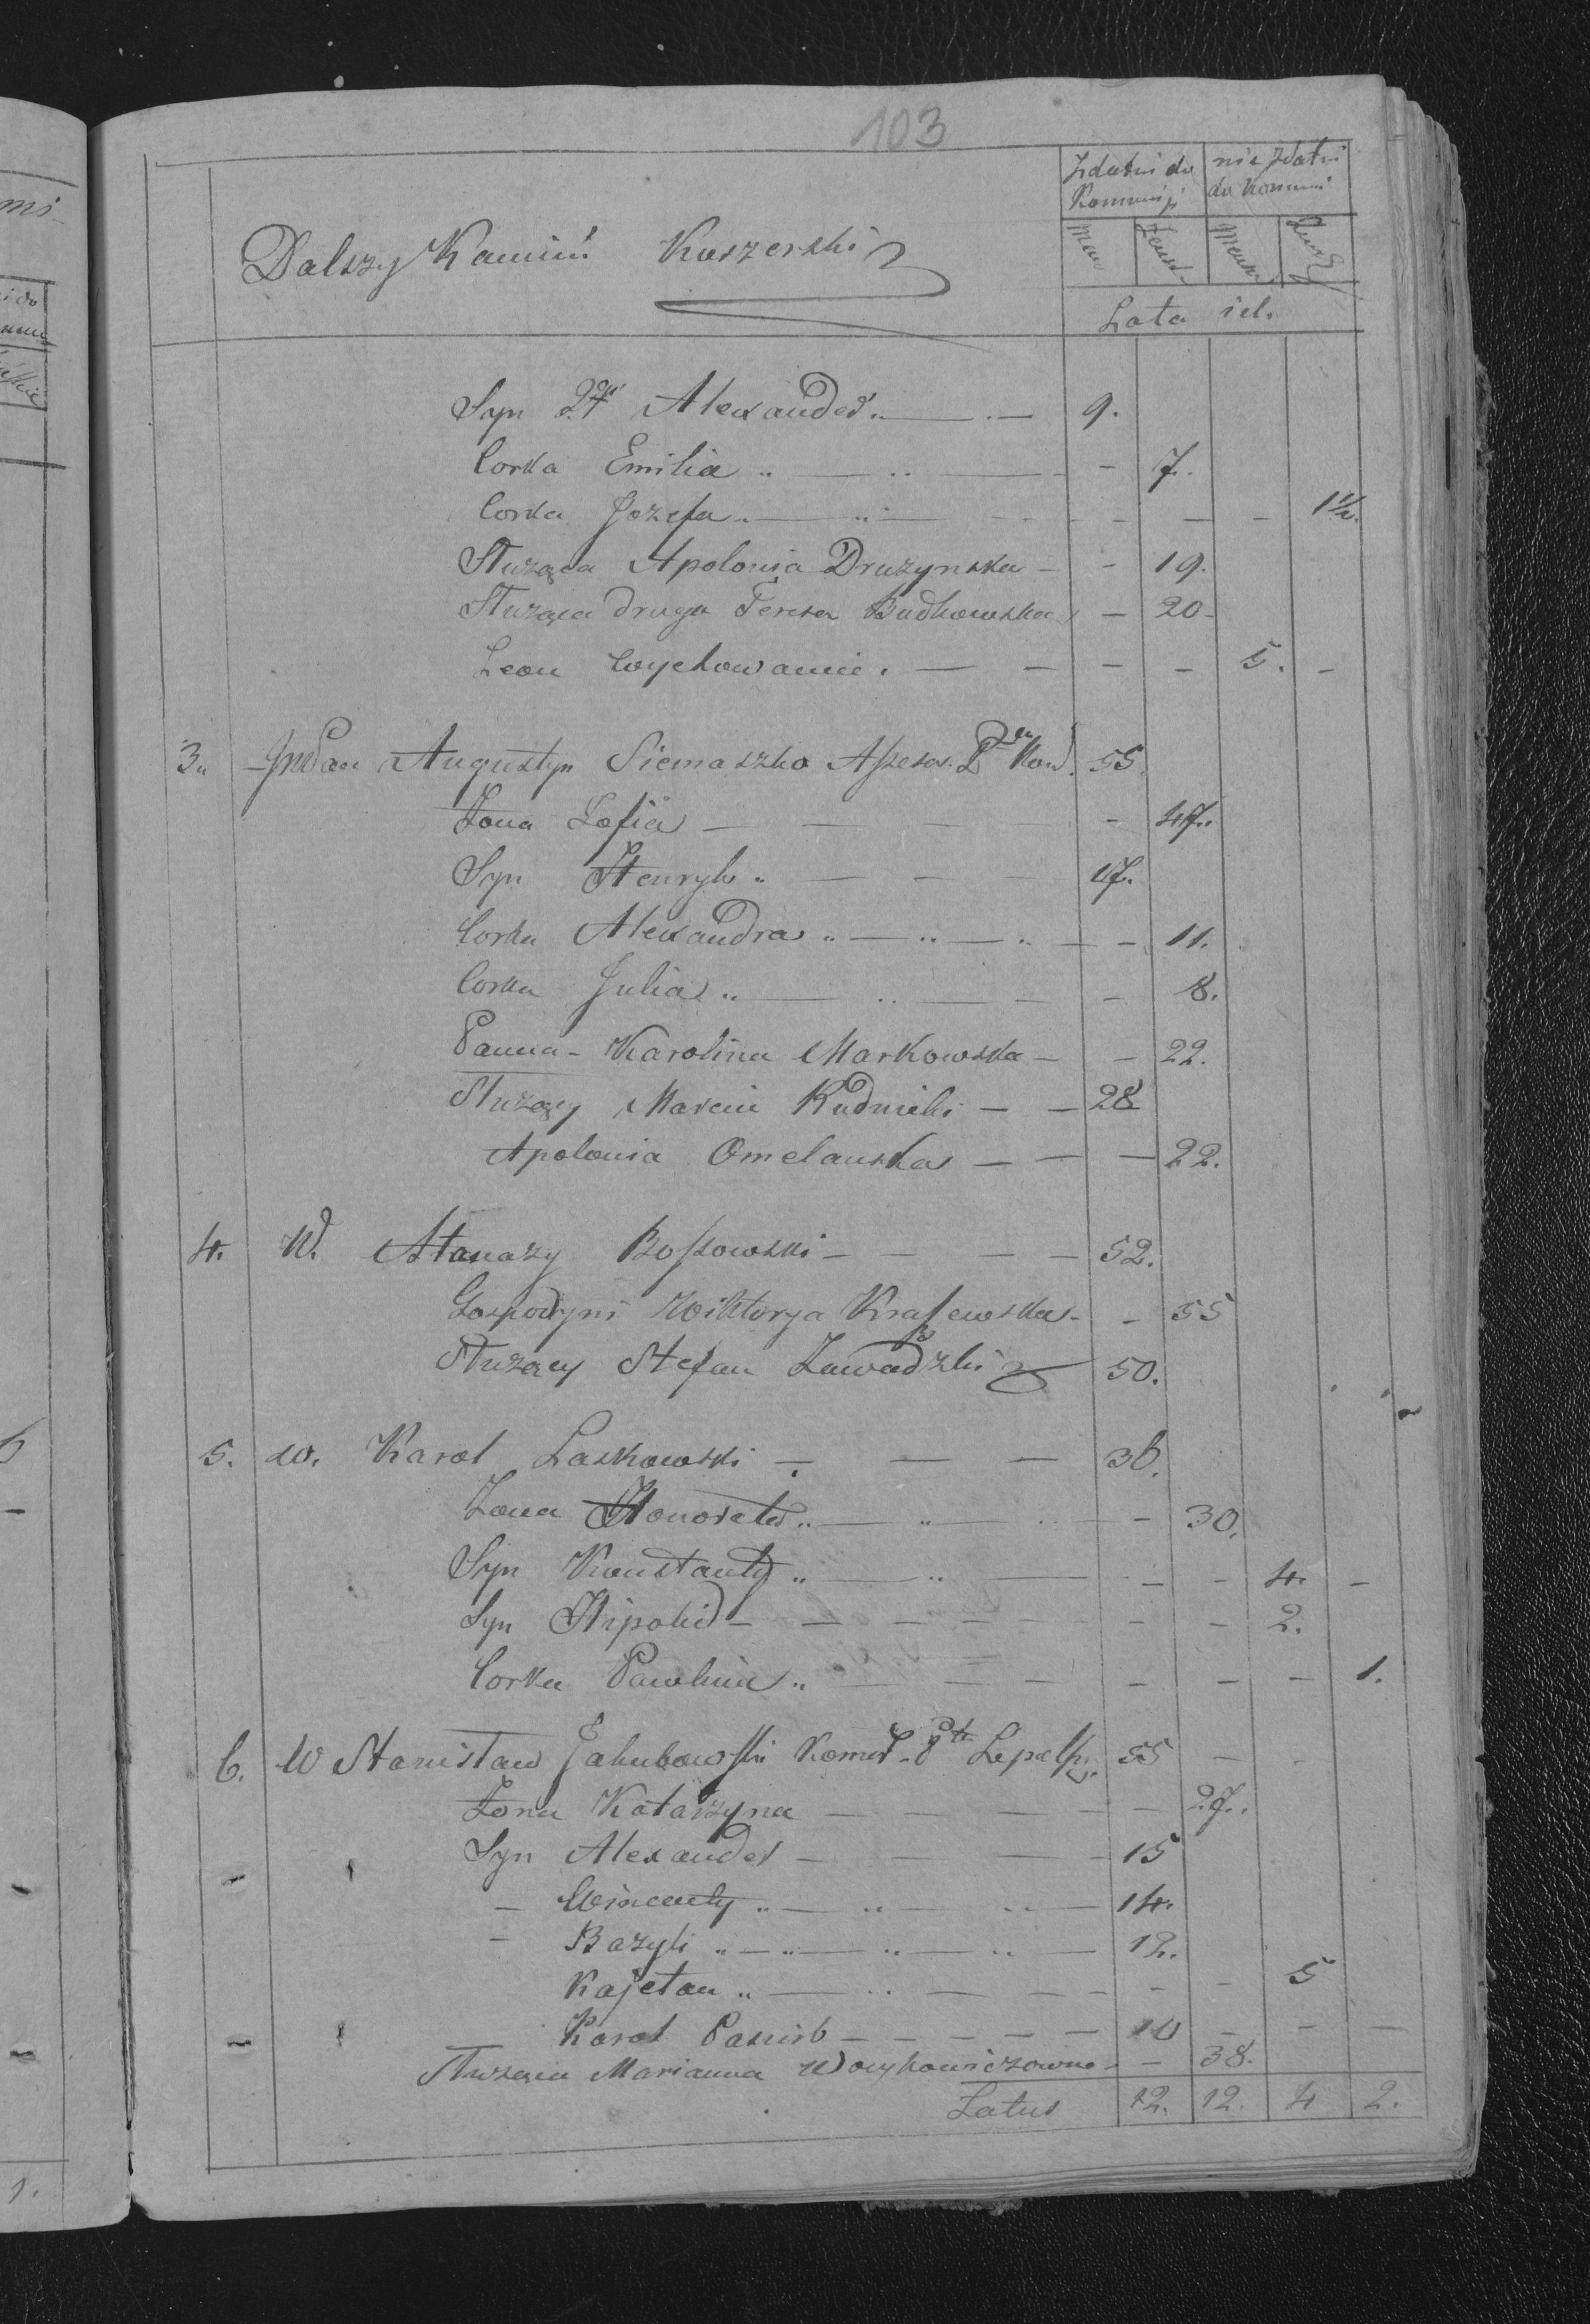 103
Zdatni do Kommunji nie zdatni do Kommuni
Dalszy Kamiń Koszerski
Lata ich.
Syn 2gi Alexander 9.
Corka Emilia 7.
Corka Jozefa 1½.
Służąca Apolonia Druzynska 19.
Służąca druga Teresa Budkowska 20
Leon Wychowanic 5.
3. Augustyn Siemaszko Assesor 55
Żona Zofia 47.
Syn Henryk 17.
Corka Alexandra 11.
Corka Julia 8.
Panna Karolina Markowska 22.
Służący Marcin Rudnicki 28
Apolonia Omelanska 22.
4. W. Atanazy Bossowski 52.
Gospodyni Wiktorya Krassewska 55
Służący Stefan Zawadzki 50.
5. W. Karol Laskowski 36.
Żona Honorata 30.
Syn Konstanty 4.
Syn Hipolid 2.
Corka Pawlina 1.
6. W Stanisław Jakubowski 55
Żona Katarzyna 27.
Syn Alexander 15
Wincenty 14.
Bazyli 12.
Kajetan 5
Karol Pasirb 10
Służąca Marianna 38.
Latus 12. 12. 4 2.